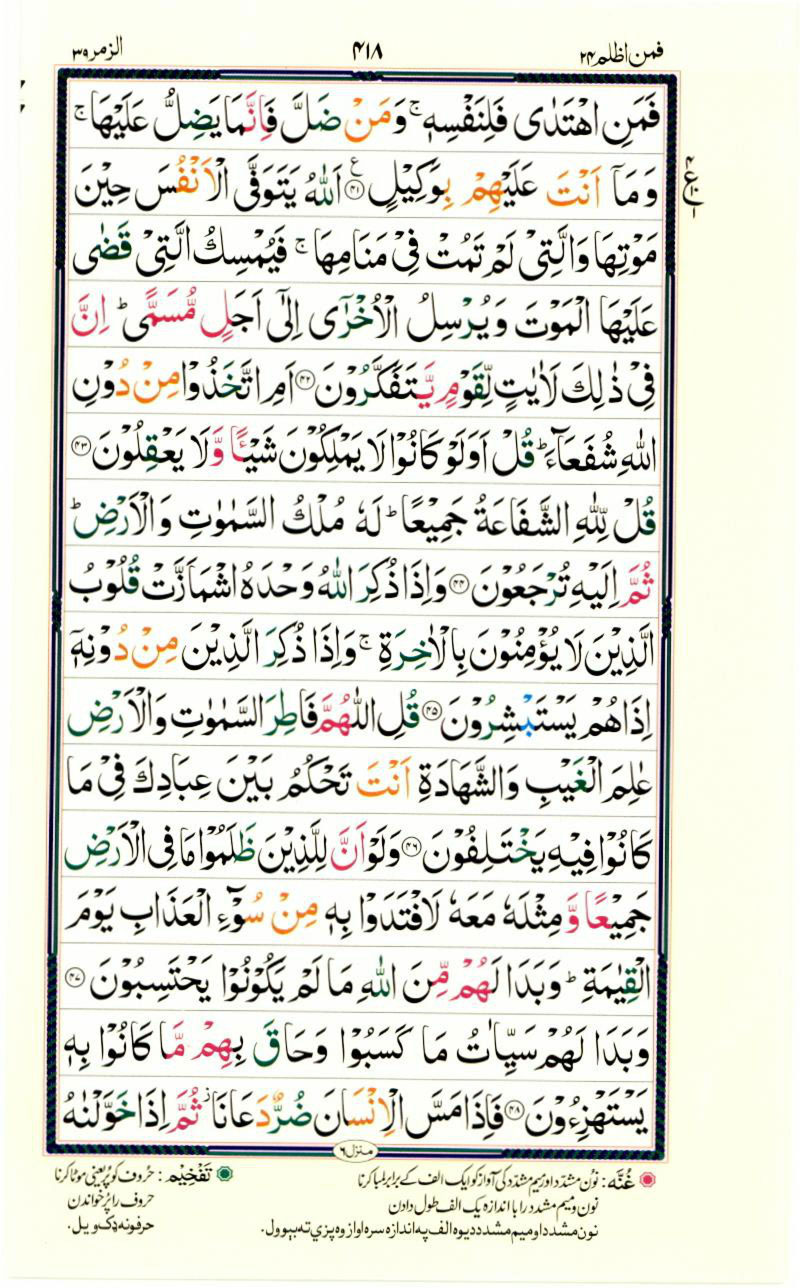 فمن اظلم ۲۴
۴۱۸
الزمر ۳۹
فَمَنِ اهْتَدٰى فَلِنَفْسِهٖ ۚ وَمَنْ ضَلَّ فَاِنَّمَا يَضِلُّ عَلَيْهَا ۚ
وَمَاۤ اَنْتَ عَلَيْهِمْ بِوَكِيْلٍ ۴۱ ع اَللّٰهُ يَتَوَفَّى الْاَنْفُسَ حِيْنَ
مَوْتِهَا وَالَّتِىْ لَمْ تَمُتْ فِىْ مَنَامِهَا ۚ فَيُمْسِكُ الَّتِىْ قَضٰى
عَلَيْهَا الْمَوْتَ وَيُرْسِلُ الْاُخْرٰٓى اِلٰٓى اَجَلٍ مُّسَمًّى ؕ اِنَّ
فِىْ ذٰلِكَ لَاٰيٰتٍ لِّقَوْمٍ يَّتَفَكَّرُوْنَ ۴۲ اَمِ اتَّخَذُوْا مِنْ دُوْنِ
اللّٰهِ شُفَعَآءَ ؕ قُلْ اَوَلَوْ كَانُوْا لَا يَمْلِكُوْنَ شَيْـًٔا وَّلَا يَعْقِلُوْنَ ۴۳
قُلْ لِّلّٰهِ الشَّفَاعَةُ جَمِيْعًا ؕ لَهٗ مُلْكُ السَّمٰوٰتِ وَالْاَرْضِ ؕ
ثُمَّ اِلَيْهِ تُرْجَعُوْنَ ۴۴ وَاِذَا ذُكِرَ اللّٰهُ وَحْدَهُ اشْمَاَزَّتْ قُلُوْبُ
الَّذِيْنَ لَا يُؤْمِنُوْنَ بِالْاٰخِرَةِ ۚ وَاِذَا ذُكِرَ الَّذِيْنَ مِنْ دُوْنِهٖۤ
اِذَا هُمْ يَسْتَبْشِرُوْنَ ۴۵ قُلِ اللّٰهُمَّ فَاطِرَ السَّمٰوٰتِ وَالْاَرْضِ
عٰلِمَ الْغَيْبِ وَالشَّهَادَةِ اَنْتَ تَحْكُمُ بَيْنَ عِبَادِكَ فِىْ مَا
كَانُوْا فِيْهِ يَخْتَلِفُوْنَ ۴۶ وَلَوْ اَنَّ لِلَّذِيْنَ ظَلَمُوْا مَا فِى الْاَرْضِ
جَمِيْعًا وَّ مِثْلَهٗ مَعَهٗ لَافْتَدَوْا بِهٖ مِنْ سُوْٓءِ الْعَذَابِ يَوْمَ
الْقِيٰمَةِ ؕ وَبَدَا لَهُمْ مِّنَ اللّٰهِ مَا لَمْ يَكُوْنُوْا يَحْتَسِبُوْنَ ۴۷
وَبَدَا لَهُمْ سَيِّاٰتُ مَا كَسَبُوْا وَحَاقَ بِهِمْ مَّا كَانُوْا بِهٖ
يَسْتَهْزِءُوْنَ ۴۸ فَاِذَا مَسَّ الْاِنْسَانَ ضُرٌّ دَعَانَا ؗ ثُمَّ اِذَا خَوَّلْنٰهُ
منزل ۶
غُنَّه: نون مشدّد اور میم مشدد کی آواز کو ایک الف کے برابر لمبا کرنا
نون و میم مشدد را با اندازه یک الف طول دادن
نون مشدد او میم مشدد د یوه الف په اندازه سره اواز وه پزې ته ببوول.
تَفْخِيْم: حروف کو پُر یعنی موٹا کرنا
حروف را پُر خواندن
حرفونه ډک ویل.